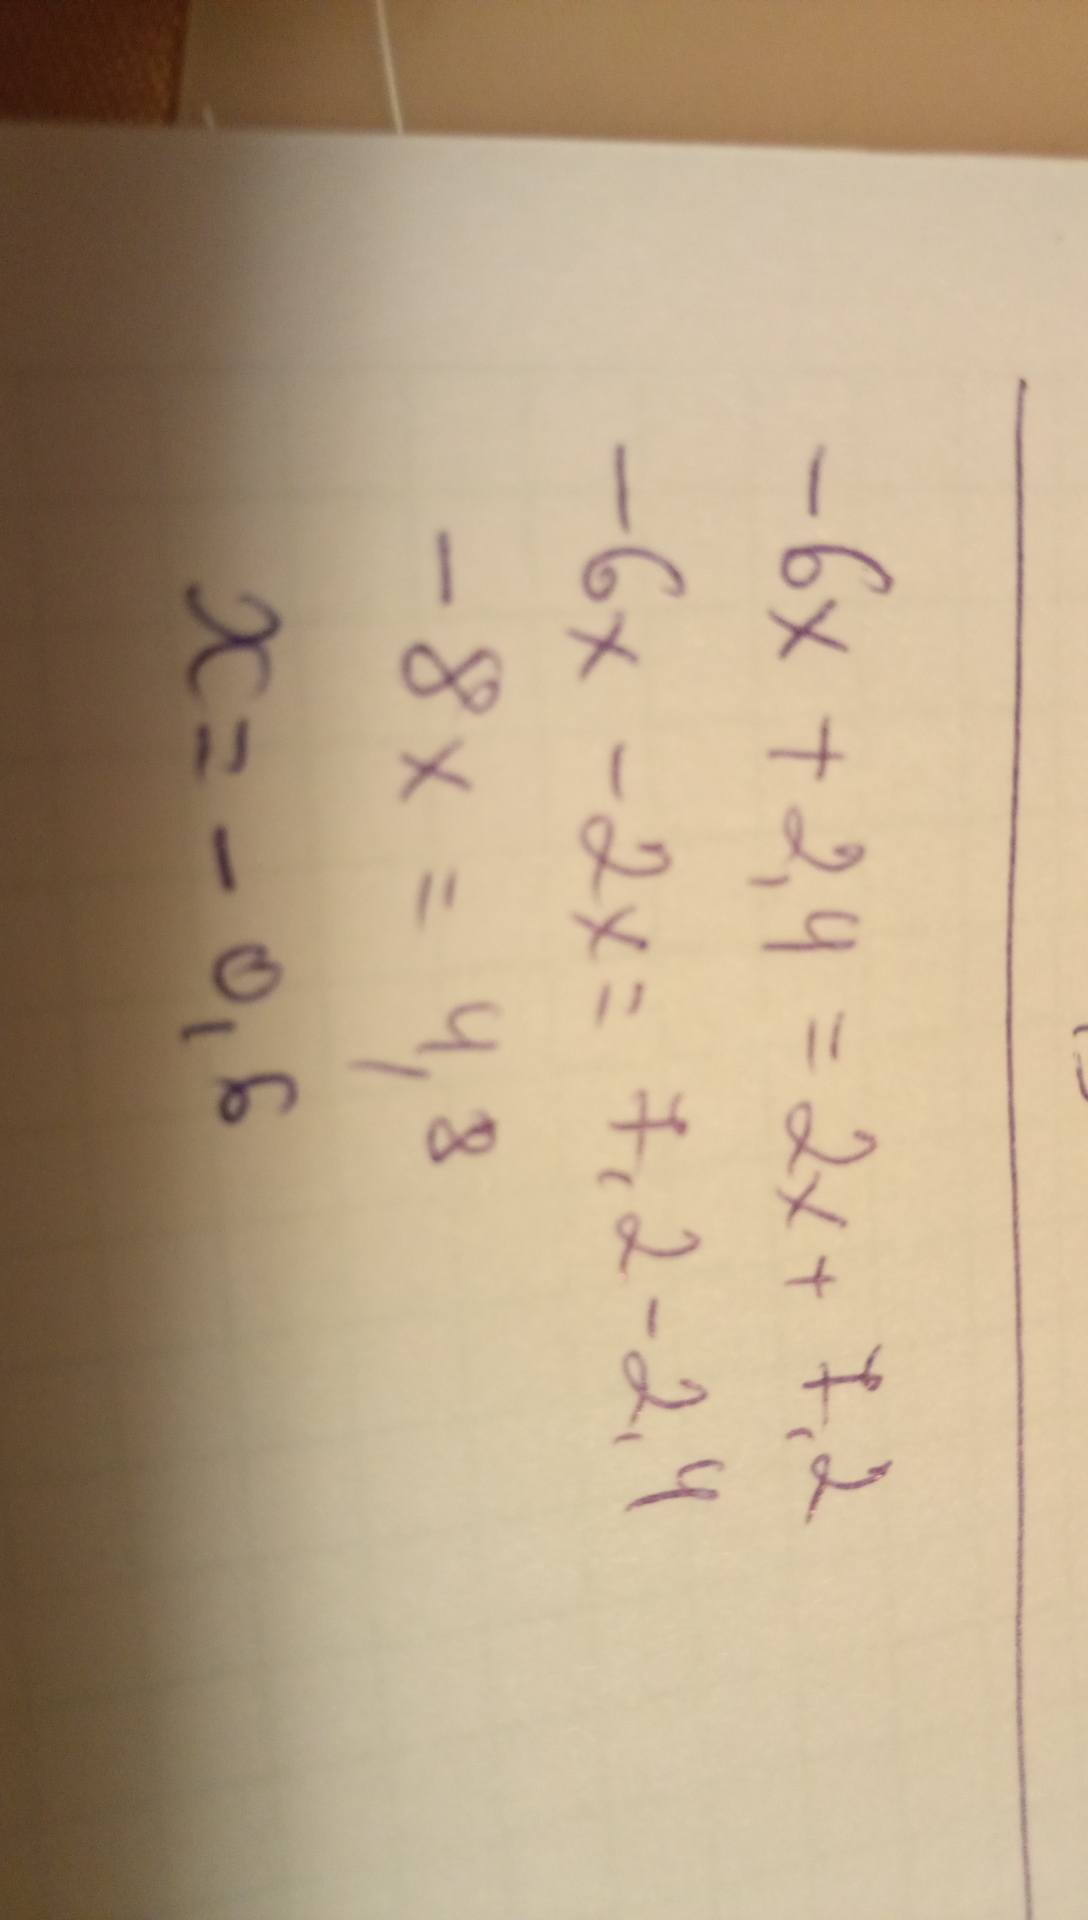 -6x + 2,4 = 2x + 7,2
-6x - 2x = 7,2 - 2,4
-8x = 4,8
x = -0,6